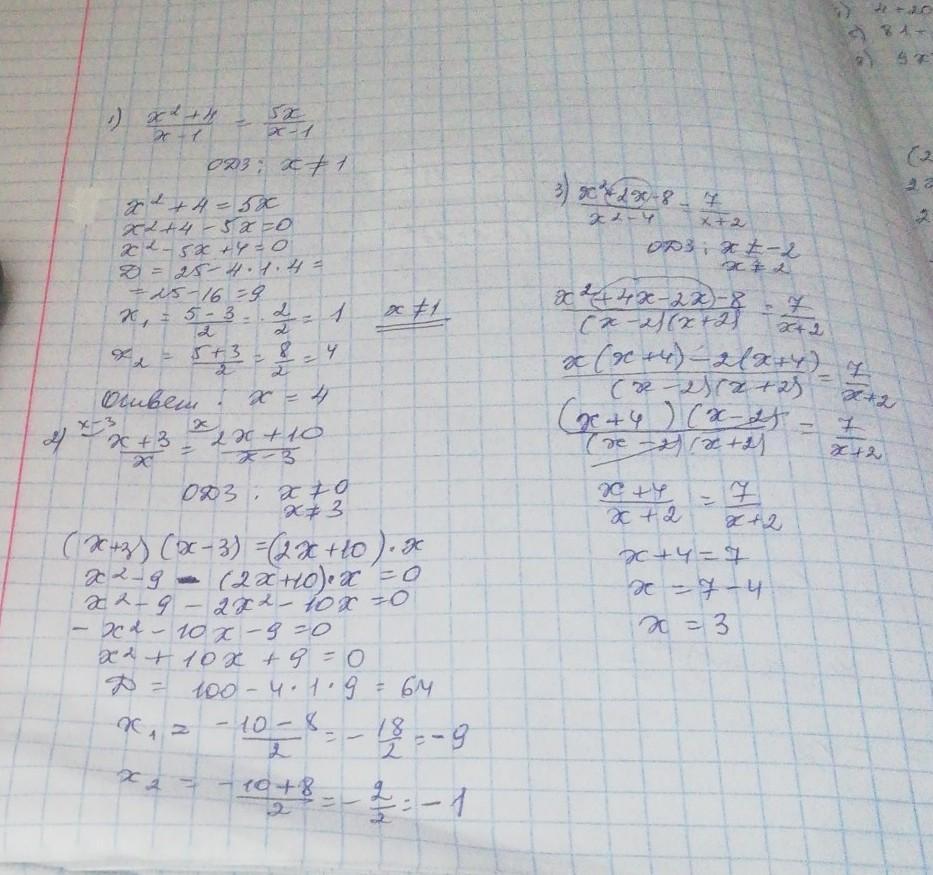 1) (x²+4)/(x-1) = 5x/(x-1)
ОДЗ: x ≠ 1
x²+4 = 5x
x²+4-5x=0
x²-5x+4=0
D = 25-4·1·4 =
= 25-16 = 9
x₁ = (5-3)/2 = 2/2 = 1 x≠1
x₂ = (5+3)/2 = 8/2 = 4
Ответ: x = 4
x-3 x
2) (x+3)/x = (2x+10)/(x-3)
ОДЗ: x ≠ 0
x ≠ 3
(x+3)(x-3) = (2x+10)·x
x²-9 - (2x+10)·x = 0
x²-9-2x²-10x=0
-x²-10x-9=0
x²+10x+9=0
D = 100-4·1·9 = 64
x₁ = (-10-8)/2 = -18/2 = -9
x₂ = (-10+8)/2 = -2/2 = -1
3) (x²+2x-8)/(x²-4) = 7/(x+2)
ОДЗ: x ≠ -2
x ≠ 2
(x²+4x-2x-8)/((x-2)(x+2)) = 7/(x+2)
(x(x+4)-2(x+4))/((x-2)(x+2)) = 7/(x+2)
((x+4)(x-2))/((x-2)(x+2)) = 7/(x+2)
(x+4)/(x+2) = 7/(x+2)
x+4=7
x = 7-4
x = 3